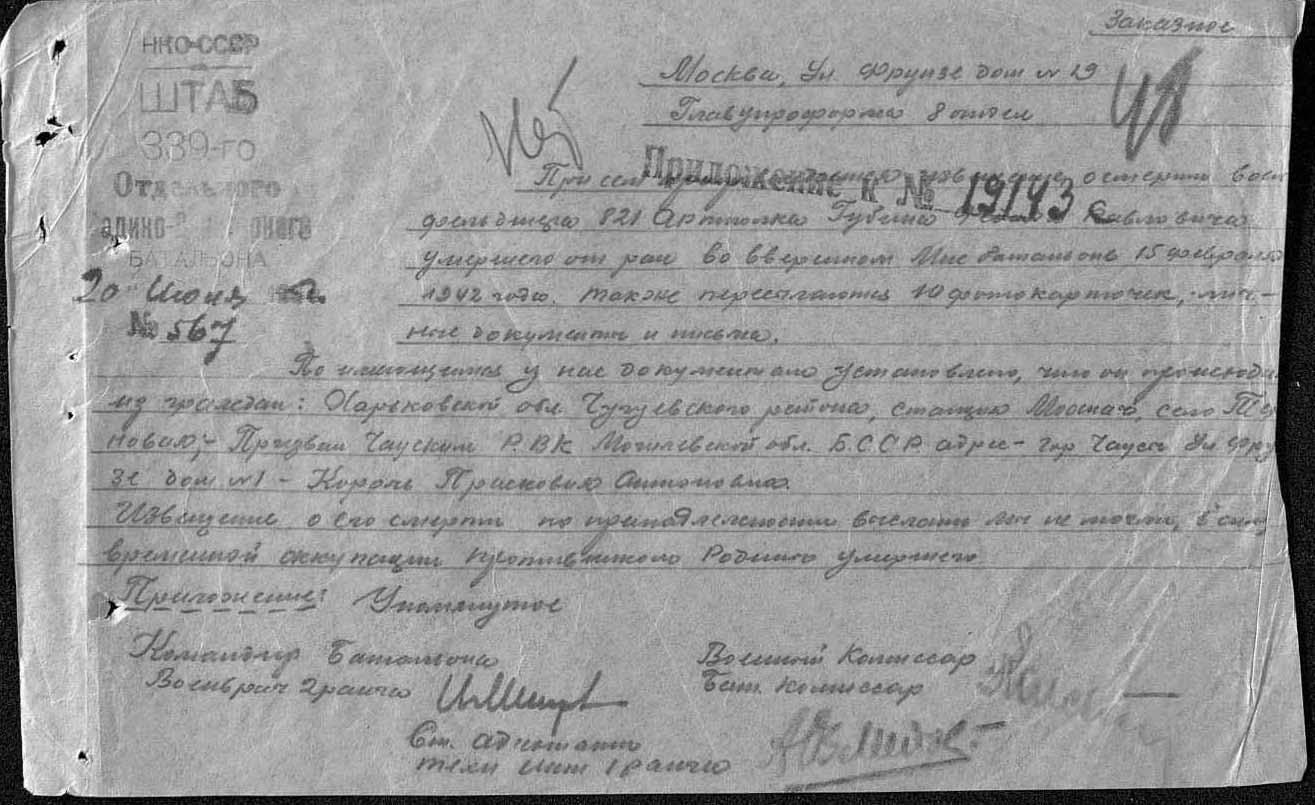 Заказное
НКО-СССР
ШТАБ
339-го
Отдельного
БАТАЛЬОНА
20 Июня
№ 567
Москва, Ул. Фрунзе дом № 19
Главупроформа 8 отдел
48
Приложение к № 19143
При сем извещение о смерти воен
фельдшера 821 Артполка Губина Павловича
умершего от ран во вверенном Мне батальоне 15 февраля
1942 года. также пересылаются 10 фотокарточек, лич-
ные документы и письма.
По имеющимся у нас документам установлено, что он происходи
из граждан: Харьковской обл Чугуевского района, станция Мохнач, село Те
новая,- Призван Чауским Р.В.К Могилевской обл. Б.С.С.Р. адрес- гор Чаусы Ул Фру
зе дом №1 - Король Прасковья Антоновна.
Извещение о его смерти по принадлежности выслать мы не можем, в силу
временной оккупации противником Родины умершего
Приложение: Упомянутое
Командир Батальона
Военврач 2 ранга
Военный Комиссар
Бат. комиссар
Ст. адъютант
техн инт 1 ранга